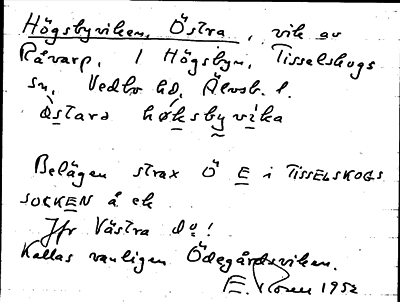 Högsbyviken, Östra, vik av
Råvarp, i Högsbyn, Tisselskogs
sn, Vedbo hd, Älvsb. l.
östarə høksbyvika
Belägen strax Ö E i TISSELSKOGS
SOCKEN å ek
Jfr Västra do!
Kallas vanligen Ödegårdsviken.
E. 1952